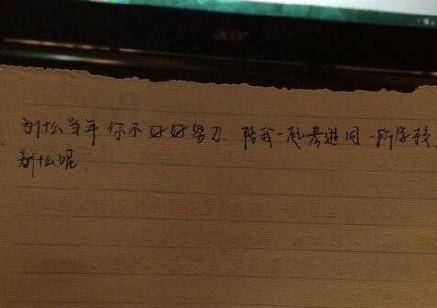 acer
为什么当年你不好好努力 陪我一起考进同一所学校
为什么呢